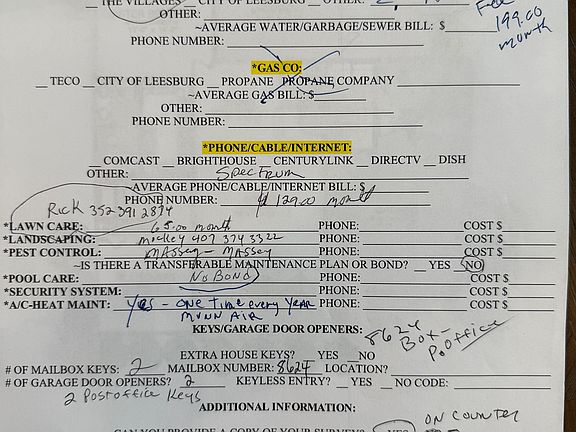 __ THE VILLAGES __ CITY OF LEESBURG __ OTHER:
OTHER:
~AVERAGE WATER/GARBAGE/SEWER BILL: $
199.00
month
PHONE NUMBER:
*GAS CO:
__ TECO __ CITY OF LEESBURG __ PROPANE PROPANE COMPANY
~AVERAGE GAS BILL: $
OTHER:
PHONE NUMBER:
*PHONE/CABLE/INTERNET:
__ COMCAST __ BRIGHTHOUSE __ CENTURYLINK __ DIRECTV __ DISH
OTHER: Spectrum
AVERAGE PHONE/CABLE/INTERNET BILL: $
PHONE NUMBER: $ 129.00 month
Rick 352 391 2874
*LAWN CARE: 65.00 month PHONE: COST $
*LANDSCAPING: mickey 407 374 3322 PHONE: COST $
*PEST CONTROL: Massey - Massey PHONE: COST $
~IS THERE A TRANSFERABLE MAINTENANCE PLAN OR BOND? __ YES NO
*POOL CARE: No Bond PHONE: COST $
*SECURITY SYSTEM: PHONE: COST $
*A/C-HEAT MAINT: yes - one time every year PHONE: COST $
Munn Air
KEYS/GARAGE DOOR OPENERS:
8624
Box-
P.office
EXTRA HOUSE KEYS? __ YES __ NO
# OF MAILBOX KEYS: 2 MAILBOX NUMBER: 8624 LOCATION?
# OF GARAGE DOOR OPENERS? 2 KEYLESS ENTRY? __ YES __ NO CODE:
2 Postoffice Keys
ADDITIONAL INFORMATION:
ON COUNTRY
CAN YOU PROVIDE A COPY OF YOUR SURVEY? YES